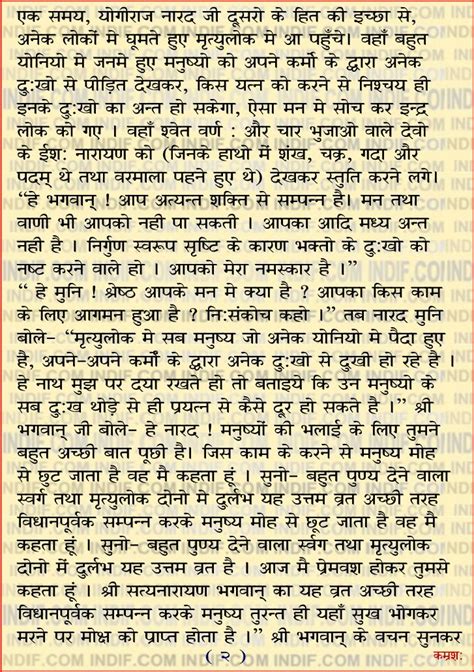 एक समय, योगीराज नारद जी दूसरो के हित की इच्छा से,
अनेक लोकों में घूमते हुए मृत्युलोक मे आ पहुँचे। वहाँ बहुत
योनियो मे जनमे हुए मनुष्यो को अपने कर्मो के द्वारा अनेक
दुःखो से पीड़ित देखकर, किस यत्न को करने से निश्चय ही
इनके दुःखो का अन्त हो सकेगा, ऐसा मन मे सोच कर इन्द्र
लोक को गए । वहाँ श्वेत वर्ण : और चार भुजाओ वाले देवो
के ईशः नारायण को (जिनके हाथो में शंख, चक्र, गदा और
पदम् थे तथा वरमाला पहने हुए थे) देखकर स्तुति करने लगे।
“हे भगवान् ! आप अत्यन्त शक्ति से सम्पन्न है। मन तथा
वाणी भी आपको नही पा सकती । आपका आदि मध्य अन्त
नही है । निर्गुण स्वरूप सृष्टि के कारण भक्तो के दुःखो को
नष्ट करने वाले हो । आपको मेरा नमस्कार है ।”
“ हे मुनि ! श्रेष्ठ आपके मन मे क्या है ? आपका किस काम
के लिए आगमन हुआ है ? निःसंकोच कहो ।” तब नारद मुनि
बोले- “मृत्युलोक मे सब मनुष्य जो अनेक योनियो मे पैदा हुए
है, अपने-अपने कर्मों के द्वारा अनेक दुःखो से दुखी हो रहे है ।
हे नाथ मुझ पर दया रखते हो तो बताइये कि उन मनुष्यो के
सब दुःख थोड़े से ही प्रयत्न से कैसे दूर हो सकते है ।” श्री
भगवान् जी बोले- हे नारद ! मनुष्यों की भलाई के लिए तुमने
बहुत अच्छी बात पूछी है। जिस काम के करने से मनुष्य मोह
से छूट जाता है वह मैं कहता हूं । सुनो- बहुत पुण्य देने वाला
स्वर्ग तथा मृत्युलोक दोनो मे दुर्लभ यह उत्तम व्रत अच्छी तरह
विधानपूर्वक सम्पन्न करके मनुष्य मोह से छूट जाता है वह मै
कहता हूं । सुनो- बहुत पुण्य देने वाला स्वर्ग तथा मृत्युलोक
दोनो में दुर्लभ यह उत्तम व्रत है । आज मै प्रेमवश होकर तुमसे
कहता हूं । श्री सत्यनारायण भगवान् का यह व्रत अच्छी तरह
विधानपूर्वक सम्पन्न करके मनुष्य तुरन्त ही यहाँ सुख भोगकर
मरने पर मोक्ष को प्राप्त होता है ।” श्री भगवान् के वचन सुनकर
( २ ) क्रमशः
INDIF.COM